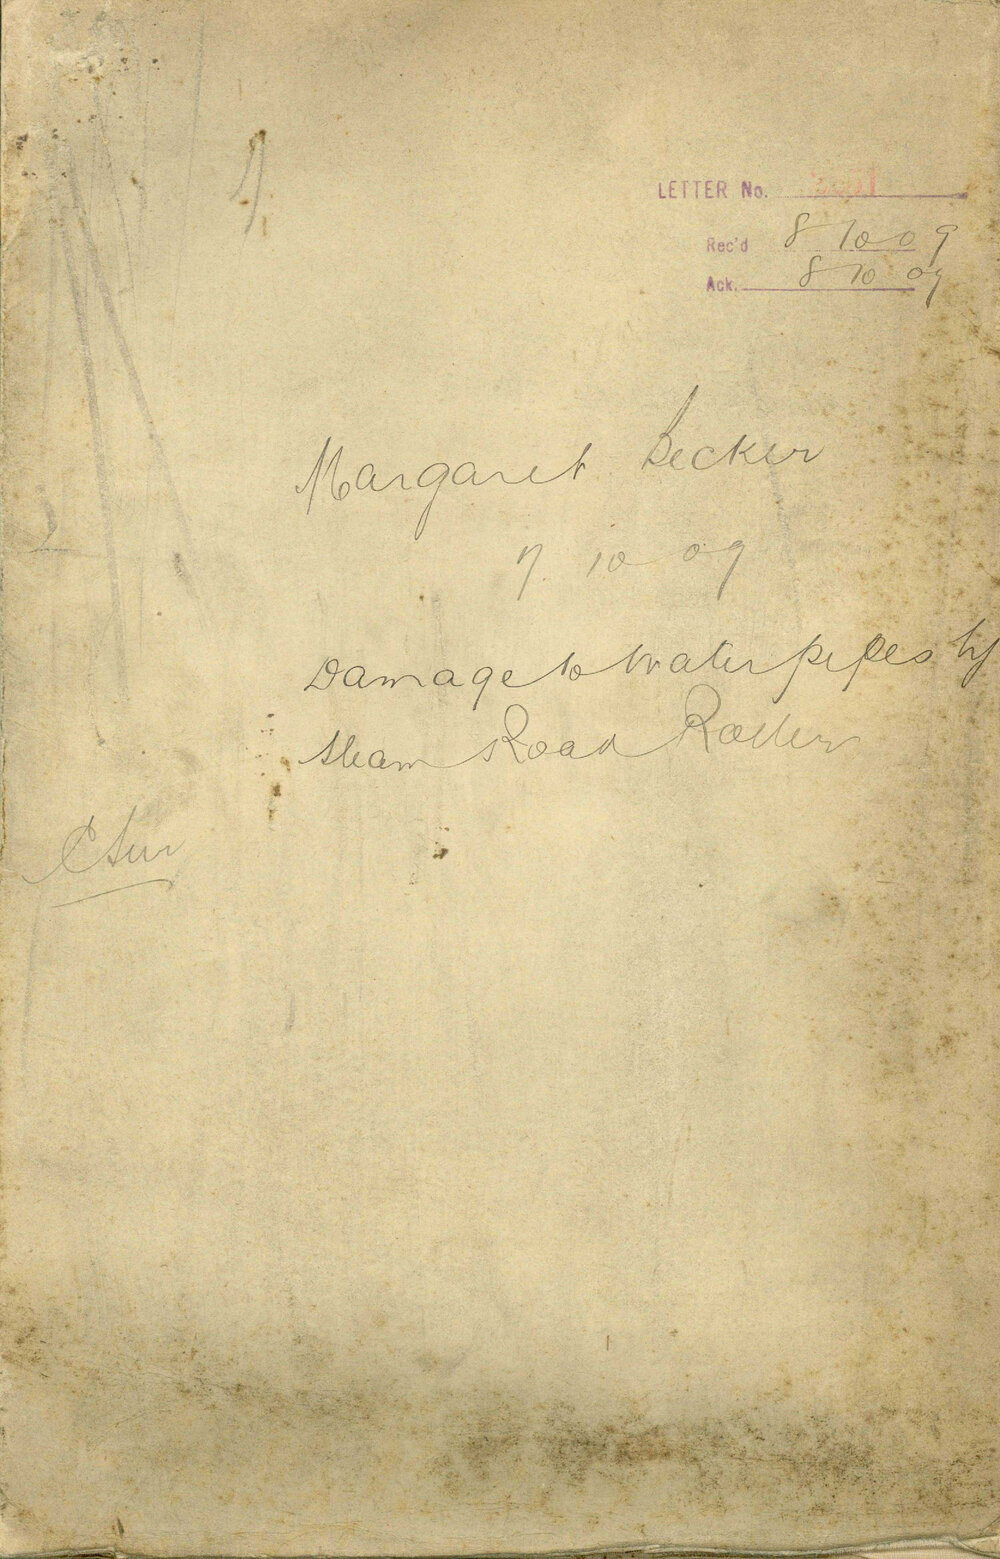 7
LETTER No.
Rec'd 8 10 09
Ack. 8 10 09
Margaret Becker
7. 10 09
Damage to Water pipes by
Steam Road Roller